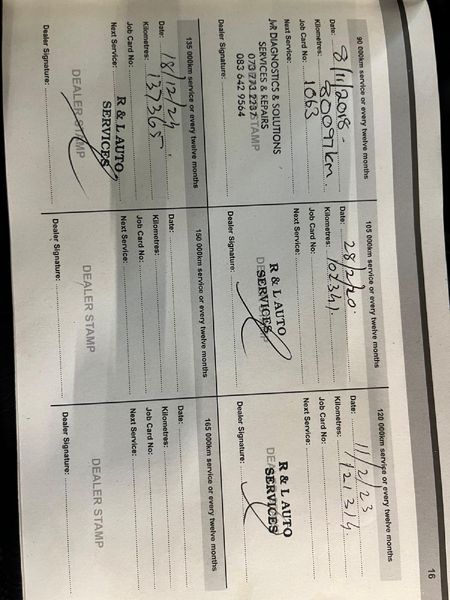 16
90 000km service or every twelve months
Date: 8/11/2018.
Kilometres: 80097km.
Job Card No: 1063
Next Service:
J&R DIAGNOSTICS & SOLUTIONS
SERVICES & REPAIRS
STAMP
083 642 9564
Dealer Signature:
105 000km service or every twelve months
Date: 28/2/20.
Kilometres: 102341.
Job Card No:
Next Service:
R & L AUTO
SERVICES
Dealer Signature:
120 000km service or every twelve months
Date: 11/2/23
Kilometres: 121314.
Job Card No:
Next Service:
R & L AUTO
SERVICES
Dealer Signature:
135 000km service or every twelve months
Date: 18/12/24.
Kilometres: 137365
Job Card No:
Next Service:
R & L AUTO
SERVICES
DEALER STAMP
Dealer Signature:
150 000km service or every twelve months
Date:
Kilometres:
Job Card No:
Next Service:
DEALER STAMP
Dealer Signature:
165 000km service or every twelve months
Date:
Kilometres:
Job Card No:
Next Service:
DEALER STAMP
Dealer Signature: